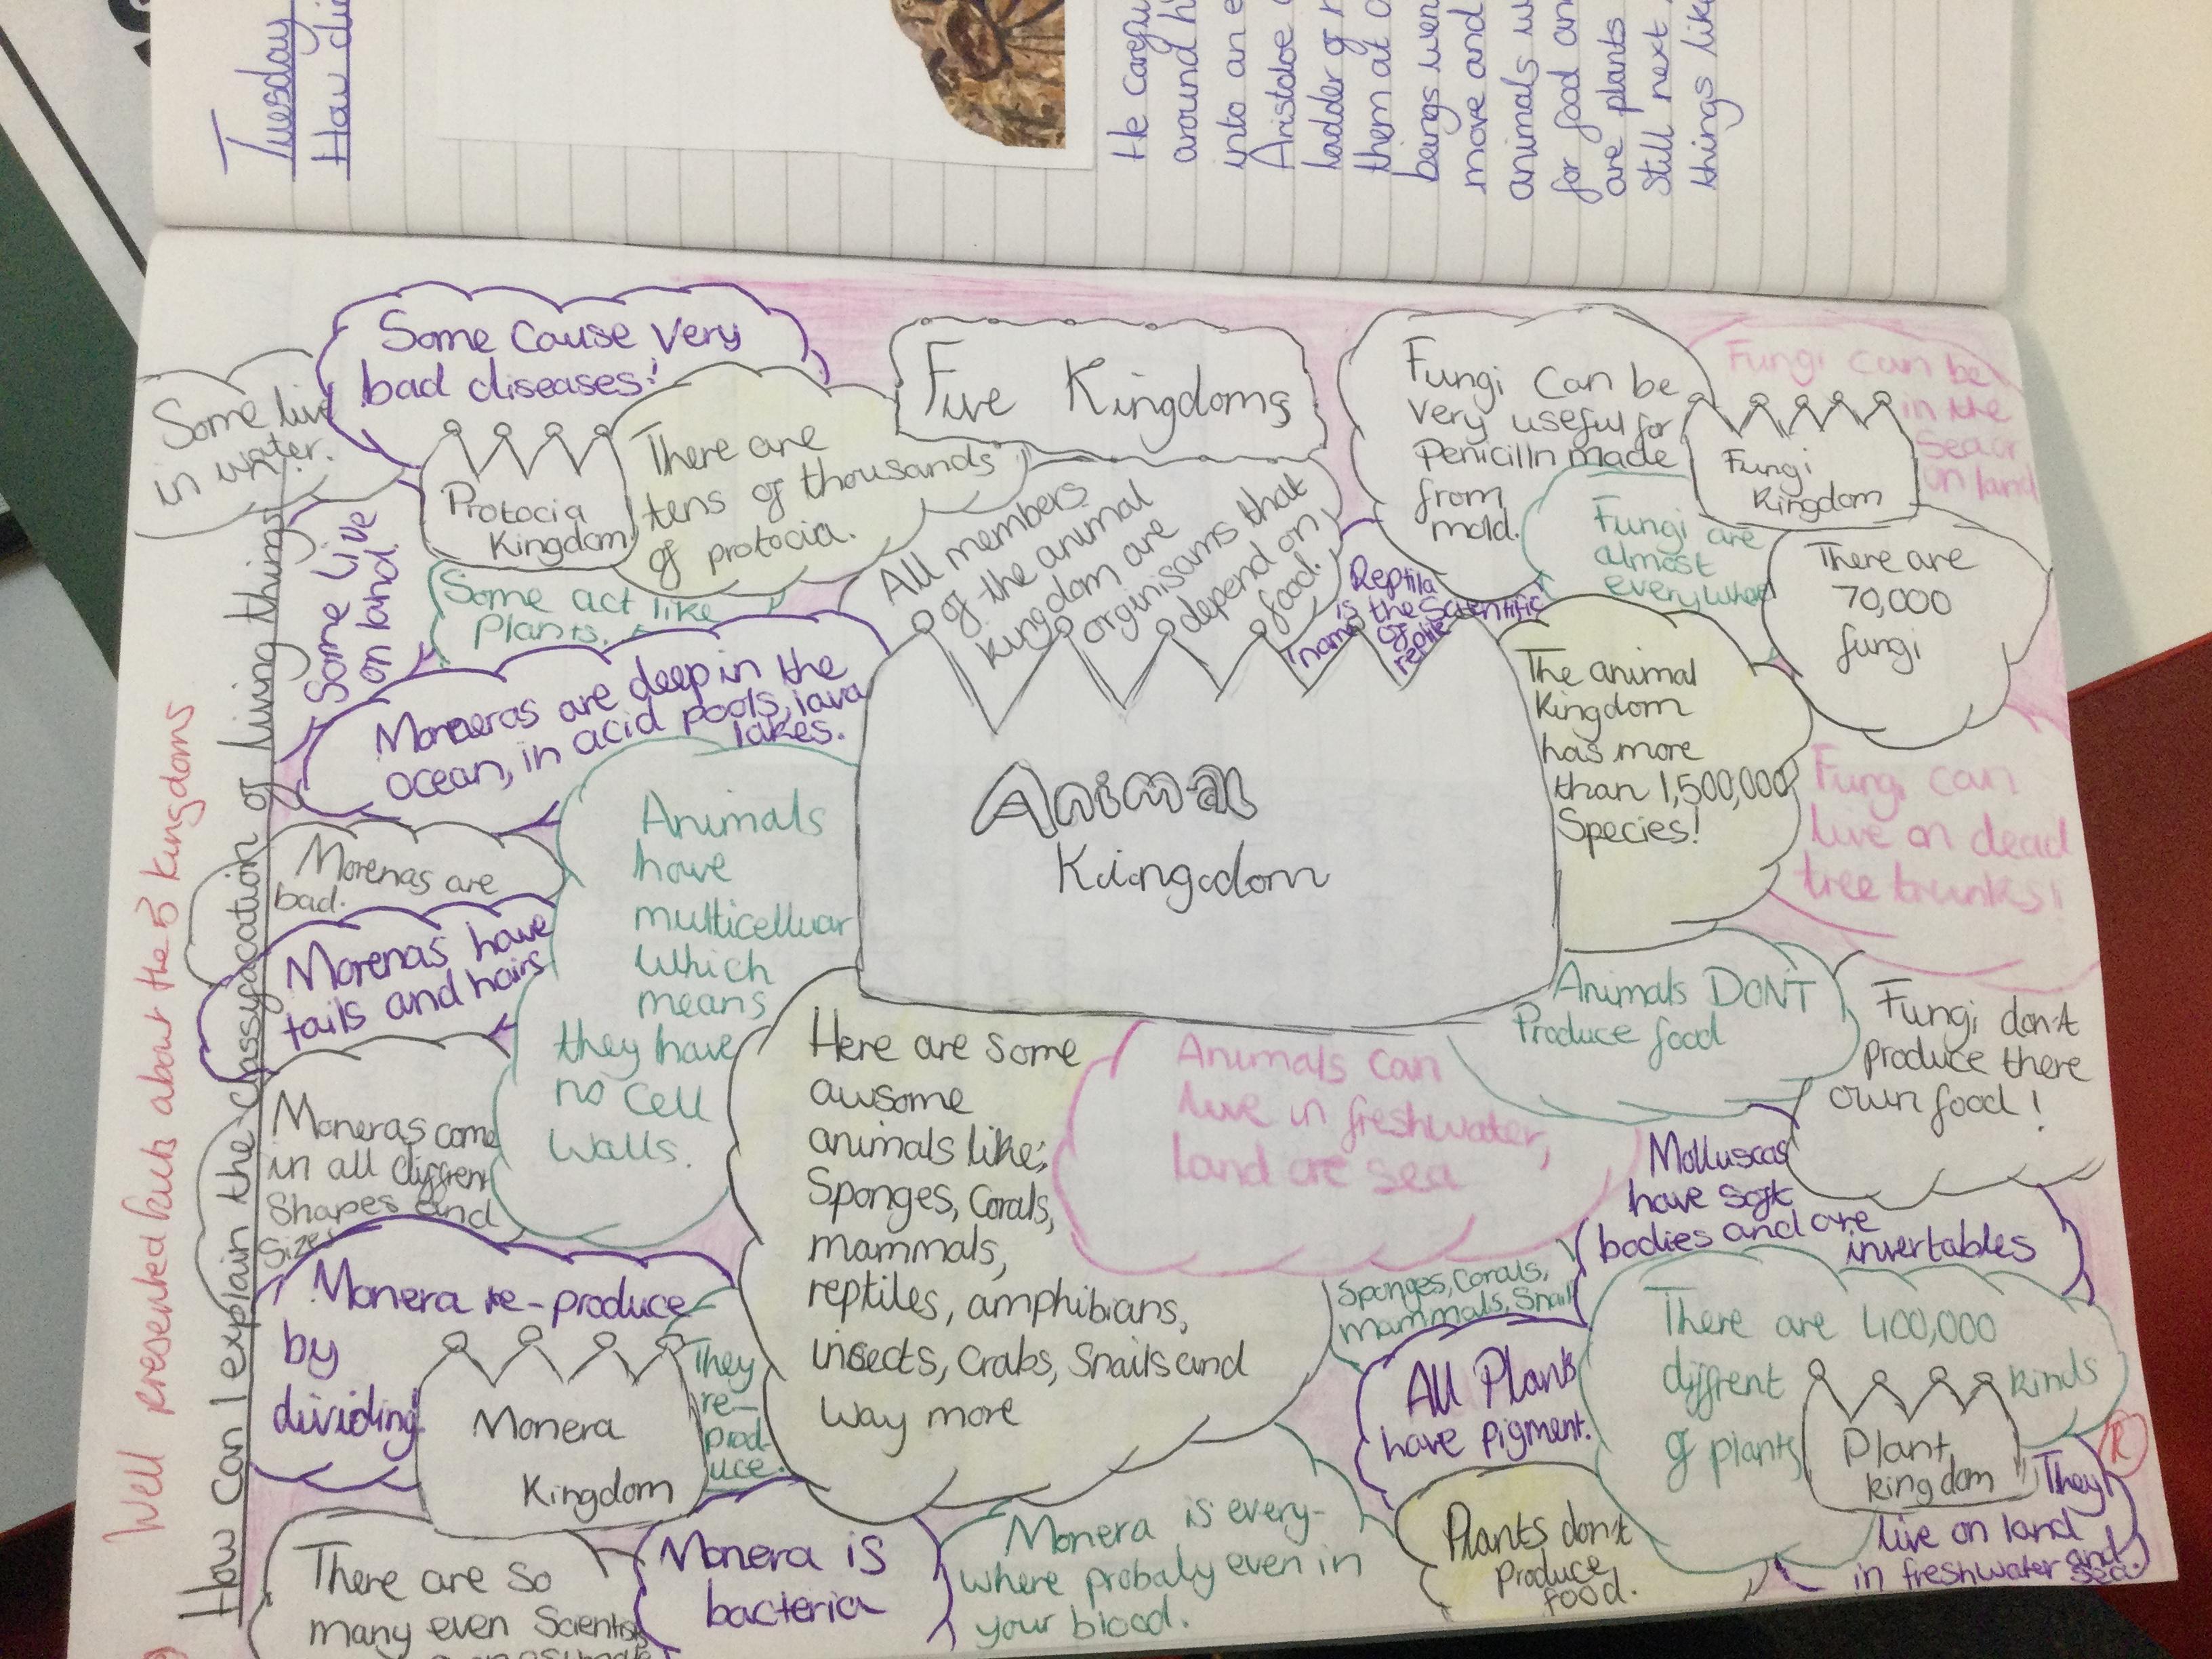 Tuesday
He
around
into an
Aristoloe
ladder of
them at
beings wer
move and
animals w
for food an
are plants
Still next
things like
Well presented facts about the 5 kingdoms
How Can I explain the classyfacation of living things
Five Kingdoms
Some Cause Very
bad diseases!
Some live
in water.
Protocia
Kingdom
There are
tens of thousands
of protocia.
Some Live
on land.
Some act like
Plants.
All members
of the animal
kingdom are
organisams that
depend on
food.
Reptila
is the Scientific
name of
reptile
Fungi Can be
very useful for
Penicilln made
from
mold.
Fungi can be
in the
Sea or
on land
Fungi
Kingdom
Fungi are
almost
everywhere
There are
70,000
fungi
Moneras are deep in the
ocean, in acid pools, lava
lakes.
Animal
Kingdom
The animal
Kingdom
has more
than 1,500,000
Species!
Fungi can
live on dead
tree trunks!
Morenas are
bad.
Morenas have
tails and hairs
Animals
have
multicelluar
Which
means
they have
no Cell
Walls.
Moneras come
in all diffrent
Shapes and
Sizes
Here are some
awsome
animals like;
Sponges, Corals,
mammals,
reptiles, amphibians,
insects, Crabs, Snails and
Way more
Animals can
live in freshwater,
land ore sea
Animals DON'T
Produce food
Fungi don't
produce there
own food!
Molluscas
have soft
bodies and are
invertables
Sponges, Corals,
mammals, Snail
Monera re-produce
by
dividing!
Monera
Kingdom
They
re-
prod-
uce.
All Plants
have pigment.
There are 400,000
diffrent kinds
of plants
Plant
kingdom
They
live on land
in freshwater and
sea.
Plants don't
Produce
food.
There are so
many even Scientists
Monera is
bacteria
Monera is every-
where probaly even in
your blood.
R